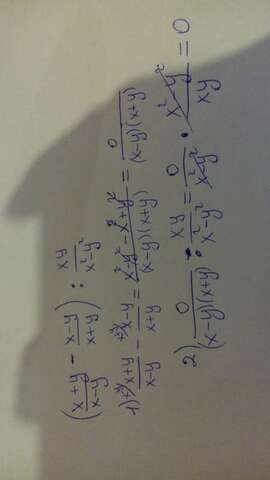 ((x+y)/(x-y) - (x-y)/(x+y)) : xy/(x²-y²)
1) ˣ⁺ʸ⁾(x+y)/(x-y) - ˣ⁻ʸ⁾(x-y)/(x+y) = (x²-y²-x²+y²)/((x-y)(x+y)) = 0/((x-y)(x+y))
2) 0/((x-y)(x+y)) : xy/(x²-y²) = 0/(x²-y²) · (x²-y²)/xy = 0